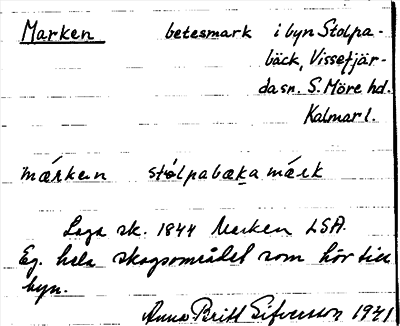 Marken betesmark i byn Stolpa-
bäck, Vissefjär-
da sn. S. Möre hd.
Kalmar l.
mærken stólpabæka mǽrk
Laga sk. 1844 Marken LSA.
Eg. hela skogsområdet som hör till
byn.
Anna Britt Sifversson 1941